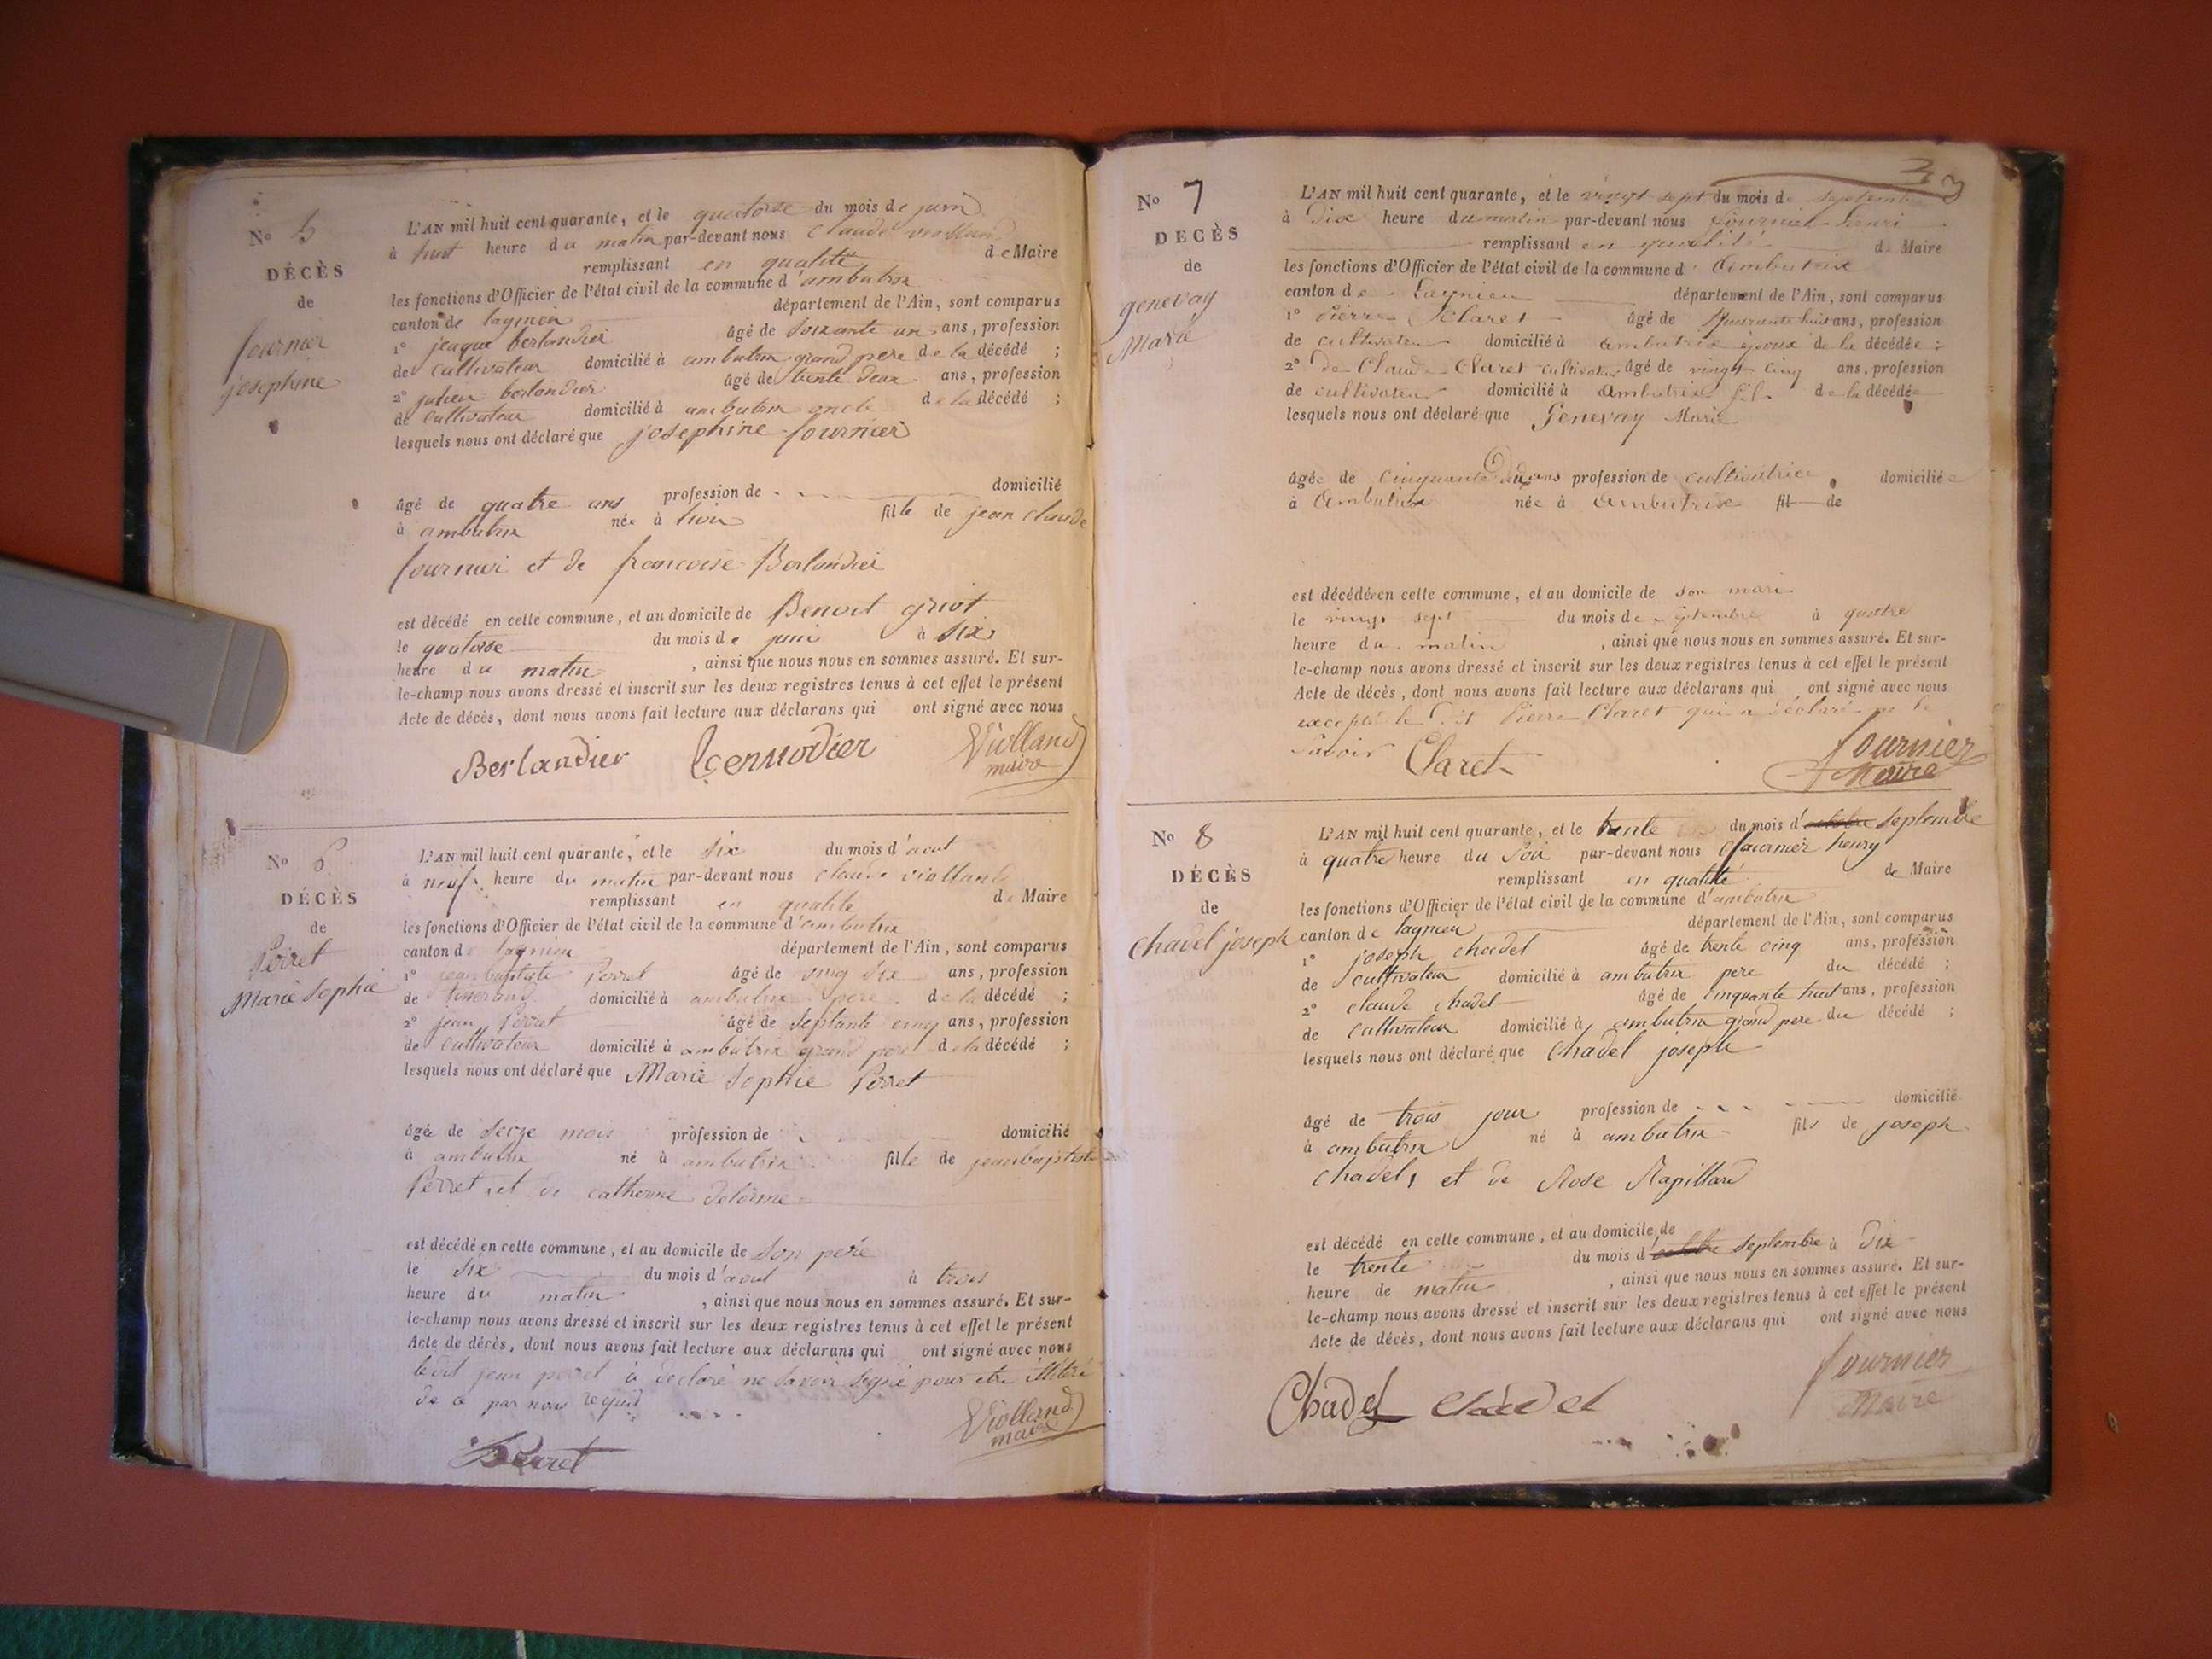 No 5
DÉCÈS
de
fournier
josephine
L'AN mil huit cent quarante, et le quatorse du mois de juin
à huit heure du matin par-devant nous Claude violland
remplissant en qualité de Maire
les fonctions d'Officier de l'état civil de la commune d'ambutrix
canton de lagnieu département de l'Ain, sont comparus
1° jeaque berlandier âgé de soixante un ans, profession
de cultivateur domicilié à ambutrix grand pere de la décédé ;
2° julien berlandier âgé de trente deux ans, profession
de cultivateur domicilié à ambutrix oncle de la décédé ;
lesquels nous ont déclaré que josephine fournier
âgé de quatre ans profession de domicilié
à ambutrix née à fille de jean claude
fournier et de francoise Berlandier
est décédé en cette commune, et au domicile de Benoit griot
le quatorse du mois de juin à six
heure du matin , ainsi que nous nous en sommes assuré. Et sur-
le-champ nous avons dressé et inscrit sur les deux registres tenus à cet effet le présent
Acte de décès, dont nous avons fait lecture aux déclarans qui ont signé avec nous
Berlandier Violland
maire
No 6
DÉCÈS
de
Perret
Marie Sophie
L'AN mil huit cent quarante, et le six du mois d'aout
à neuf heure du matin par-devant nous claude violland
remplissant en qualite de Maire
les fonctions d'Officier de l'état civil de la commune d'ambutrix
canton de lagnieu département de l'Ain, sont comparus
1° jean baptiste Perret âgé de ving six ans, profession
de tisserand domicilié à ambutrix pere de la décédé ;
2° jean Perret âgé de septante cinq ans, profession
de cultivateur domicilié à ambutrix grand pere de la décédé ;
lesquels nous ont déclaré que Marie Sophie Perret
âgée de seize mois profession de domicilié
à ambutrix né à ambutrix fille de jeanbaptiste
Perret et de catherine delorme
est décédé en cette commune, et au domicile de son pere
le six du mois d'aout à trois
heure du matin , ainsi que nous nous en sommes assuré. Et sur-
le-champ nous avons dressé et inscrit sur les deux registres tenus à cet effet le présent
Acte de décès, dont nous avons fait lecture aux déclarans qui ont signé avec nous
ledit jean perret à declaré ne savoir signé pour etre illiteré
de ce par nous requis
Perret Violland
maire
No 7
DECÈS
de
genevay
Marie
L'AN mil huit cent quarante, et le vingt sept du mois de septembre
à Dix heure du matin par-devant nous fournier henri
remplissant en qualité de Maire
les fonctions d'Officier de l'état civil de la commune d'Ambutrix
canton de Lagnieu département de l'Ain, sont comparus
1° Pierre Claret âgé de Quarante huit ans, profession
de cultivateur domicilié à ambutrix époux de la décédée ;
2° de Claude Claret cultivateur âgé de vingt cinq ans, profession
de cultivateur domicilié à Ambutrix fils de la décédée
lesquels nous ont déclaré que Genevay Marie
âgée de cinquante ans profession de cultivatrice domiciliée
à Ambutrix née à Ambutrix fil de
est décédée en cette commune, et au domicile de son mari
le vingt sept du mois de septembre à quatre
heure du matin , ainsi que nous nous en sommes assuré. Et sur-
le-champ nous avons dressé et inscrit sur les deux registres tenus à cet effet le présent
Acte de décès, dont nous avons fait lecture aux déclarans qui ont signé avec nous
excepté le dit Pierre Claret qui a déclaré ne le
savoir Claret fournier
Maire
No 8
DÉCÈS
de
chadel joseph
L'AN mil huit cent quarante, et le trente du mois d'octobre septembre
à quatre heure du soir par-devant nous fournier henry
remplissant en qualité de Maire
les fonctions d'Officier de l'état civil de la commune d'ambutrix
canton de lagnieu département de l'Ain, sont comparus
1° joseph chadel âgé de trente cinq ans, profession
de cultivateur domicilié à ambutrix pere du décédé ;
2° claude chadel âgé de cinquante huit ans, profession
de cultivateur domicilié à ambutrix grand pere du décédé ;
lesquels nous ont déclaré que Chadel joseph
âgé de trois jour profession de domicilié
à ambutrix né à ambutrix fils de joseph
chadel, et de Rose Rapillard
est décédé en cette commune, et au domicile de
le trente du mois d'octobre septembre à dix
heure de matin , ainsi que nous nous en sommes assuré. Et sur-
le-champ nous avons dressé et inscrit sur les deux registres tenus à cet effet le présent
Acte de décès, dont nous avons fait lecture aux déclarans qui ont signé avec nous
Chadel Chadel fournier
Maire